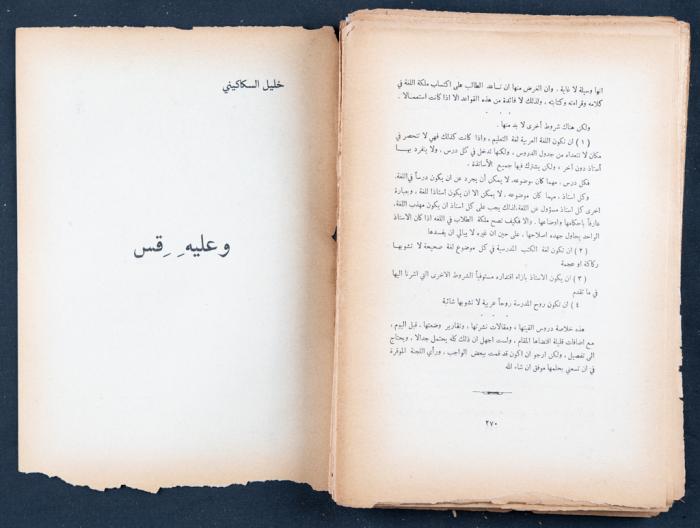 خليل السكاكيني
وعليهِ ِقس
انها وسيلة لا غاية . وان الغرض منها ان تساعد الطالب على اكتساب ملكة اللغة في
كلامه وقراءته وكتابته . ولذلك لا فائدة من هذه القواعد الا اذا كانت استعمالا .
. . .
ولكن هناك شروط أخرى لا بد منها .
( ١ ) ان تكون اللغة العربية لغة التعليم ، واذا كانت كذلك فهي لا تنحصر في
مكان لا تتعداه من جدول الدروس . ولكنها تدخل في كل درس . ولا ينفرد بهــا
أستاذ دون آخر ؛ ولكن يشترك فيها جميع الأساتذة .
فكل درس ، مهما كان موضوعه، لا يمكن أن يجرد عن ان يكون درساً في اللغة.
وكل استاذ، مهما كان موضوعه ، لا يمكن الا ان يكون أستاذا للغة ، وبعبارة
اخرى كل استاذ مسؤول عن اللغة،لذلك يجب على كل استاذ ان يكون مهذب اللغة،
عارفاً بأحكامها وأوضاعها . والا فكيف تصح ملكة الطلاب في اللغه اذا كان الاستاذ
الواحد يحاول جهده اصلاحها ، على حين ان غيره لا يبالي ان يفسدها
( ٢ ) ان تكون لغة الكتب المدرسية في كل موضوع لغة صحيحة لا تشوبها
ركاكة او عجمة
( ٣ ) ان يكون الاستاذ بازاء اقتداره مستوفياً الشروط الاخرى التي اشرنا اليها
في ما تقدم
٤ ) ان تكون روح المدرسة روحاً عربية لا تشوبها شائبة
هذه خلاصة دروس القيتها ، ومقالات نشرتها ، وتقارير وضعتها ، قبل اليوم ،
مع اضافات قليلة اقتضاها المقام ، ولست اجهل ان ذلك كله يحتمل جدالا . ويحتاج
الى تفصيل ، ولكن ارجو ان اكون قد قمت ببعض الواجب ، ورأي اللجنة الموقرة
في ان تسعني بحلمها موفق ان شاء الله
٢٧٠